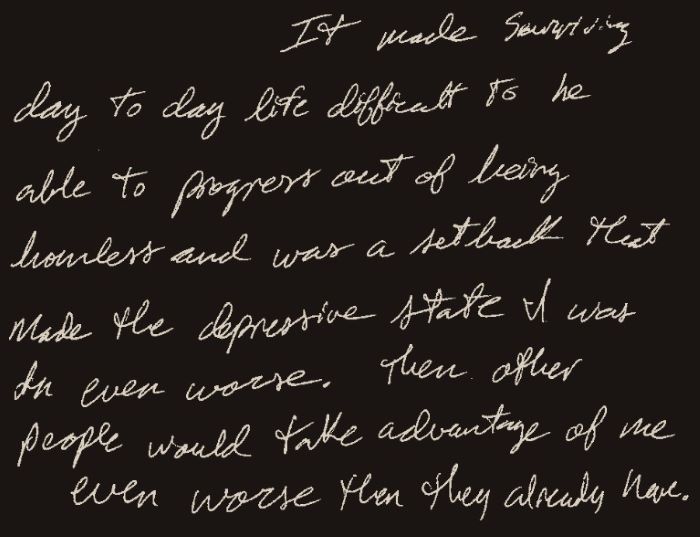 It made Surviving
day to day life difficult to be
able to progress out of being
homless and was a setback that
made the depressive state I was
In even worse. Then other
people would take advantage of me
even worse then they already have.